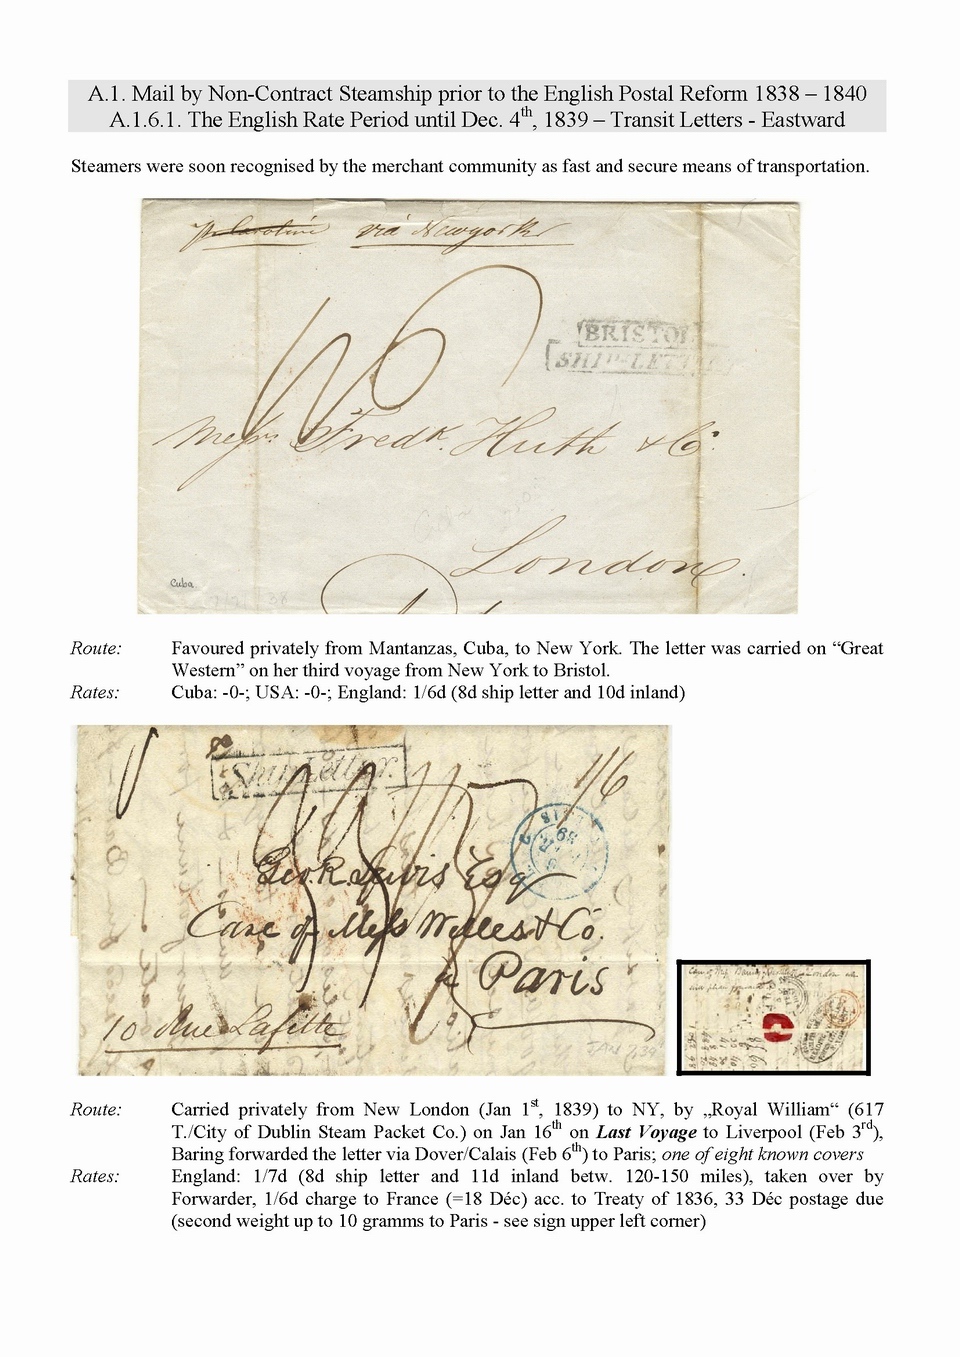 A.1. Mail by Non-Contract Steamship prior to the English Postal Reform 1838 – 1840
A.1.6.1. The English Rate Period until Dec. 4th, 1839 – Transit Letters - Eastward
Steamers were soon recognised by the merchant community as fast and secure means of transportation.
via Newyork
BRISTOL
SHIP-LETTER
Messrs Fredk. Huth & Co.
London.
Cuba
Route: Favoured privately from Mantanzas, Cuba, to New York. The letter was carried on “Great
Western” on her third voyage from New York to Bristol.
Rates: Cuba: -0-; USA: -0-; England: 1/6d (8d ship letter and 10d inland)
Ship Letter.
1/6
Geo. R. Lewis Esq
Care of Mess Welles & Co.
Paris
10 Rue Lafitte
JAN 7 39
Route: Carried privately from New London (Jan 1st, 1839) to NY, by „Royal William“ (617
T./City of Dublin Steam Packet Co.) on Jan 16th on Last Voyage to Liverpool (Feb 3rd),
Baring forwarded the letter via Dover/Calais (Feb 6th) to Paris; one of eight known covers
Rates: England: 1/7d (8d ship letter and 11d inland betw. 120-150 miles), taken over by
Forwarder, 1/6d charge to France (=18 Déc) acc. to Treaty of 1836, 33 Déc postage due
(second weight up to 10 gramms to Paris - see sign upper left corner)